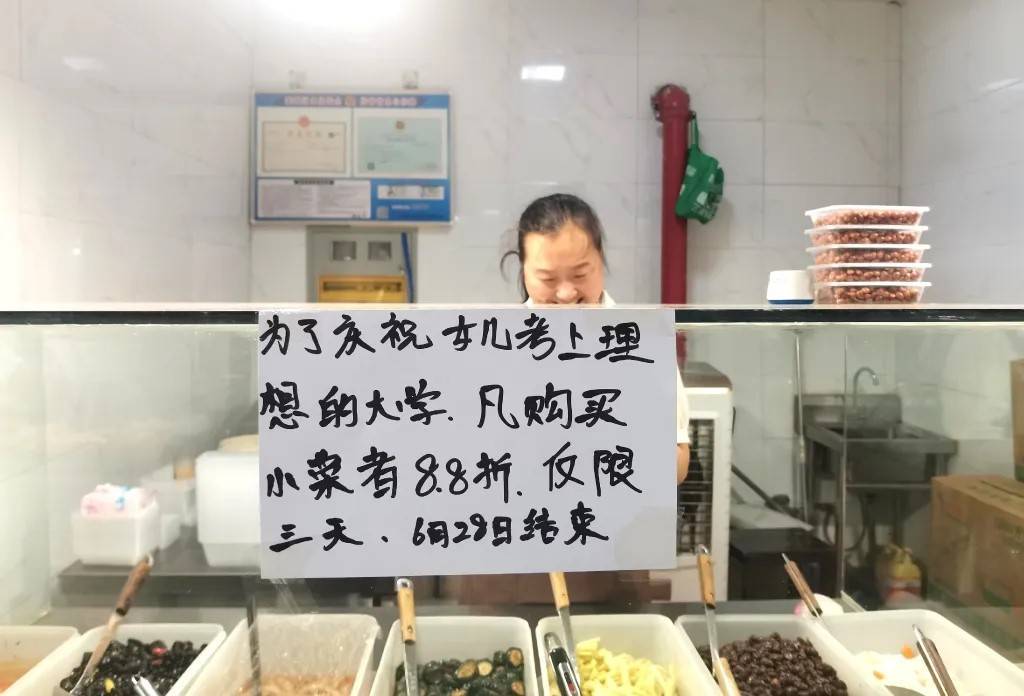 为了庆祝女儿考上理
想的大学、凡购买
小菜者8.8折、仅限
三天、6月28日结束